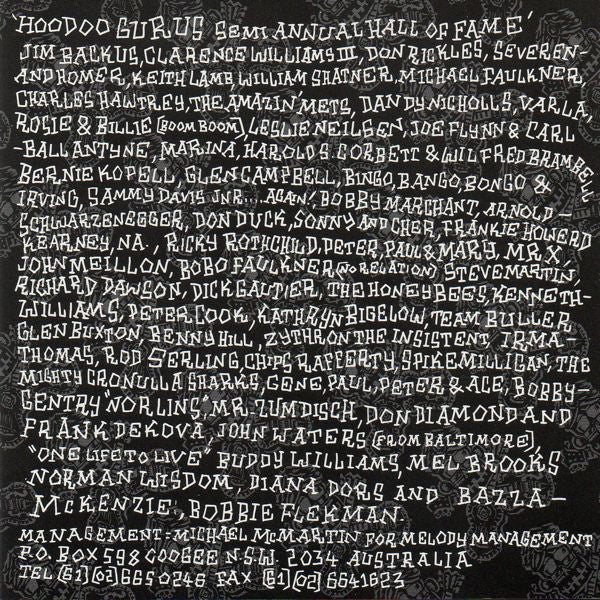 'HOODOO GURUS SEMI ANNUAL HALL OF FAME'
JIM BACKUS, CLARENCE WILLIAMS III, DON RICKLES, SEVEREN-
AND HOMER, KEITH LAMB, WILLIAM SHATNER, MICHAEL FAULKNER,
CHARLES HAWTREY, THE AMAZIN' METS, DANDY NICHOLLS, VARLA,
ROSIE & BILLIE (BOOM BOOM), LESLIE NEILSEN, JOE FLYNN & CARL
-BALLANTYNE, MARINA, HAROLD S. CORBETT & WILFRED BRAMBELL
BERNIE KOPELL, GLEN CAMPBELL, BINGO, BANGO, BONGO &
IRVING, SAMMY DAVIS JNR... AGAIN! BOBBY MARCHANT, ARNOLD -
SCHWARZENEGGER, DON DUCK, SONNY AND CHER, FRANKIE HOWERD
KEARNEY, NA., RICKY ROTHCHILD, PETER, PAUL & MARY, MR X,
JOHN MEILLON, BOBO FAULKNER (NO RELATION) STEVE MARTIN,
RICHARD DAWSON, DICK GAUTIER, THE HONEY BEES, KENNETH-
WILLIAMS, PETER COOK, KATHRYN BIGELOW, TEAM BULLER
GLEN BUXTON, BENNY HILL, ZYTHRON THE INSISTENT, IRMA-
THOMAS, ROD SERLING, CHIPS RAFFERTY, SPIKE MILLIGAN, THE
MIGHTY CRONULLA SHARKS, GENE, PAUL, PETER & ACE, BOBBY-
GENTRY "NORLINS", MR. ZUMDISCH, DON DIAMOND AND
FRANK DEKOVA, JOHN WATERS (FROM BALTIMORE),
"ONE LIFE TO LIVE" BUDDY WILLIAMS, MEL BROOKS
NORMAN WISDOM, DIANA DORS AND BAZZA-
MCKENZIE, BOBBIE FLEKMAN.
MANAGEMENT: MICHAEL MCMARTIN FOR MELODY MANAGEMENT
P.O. BOX 598 COOGEE N.S.W. 2034 AUSTRALIA
TEL (61) (02) 665 0246 FAX (61) (02) 6641623